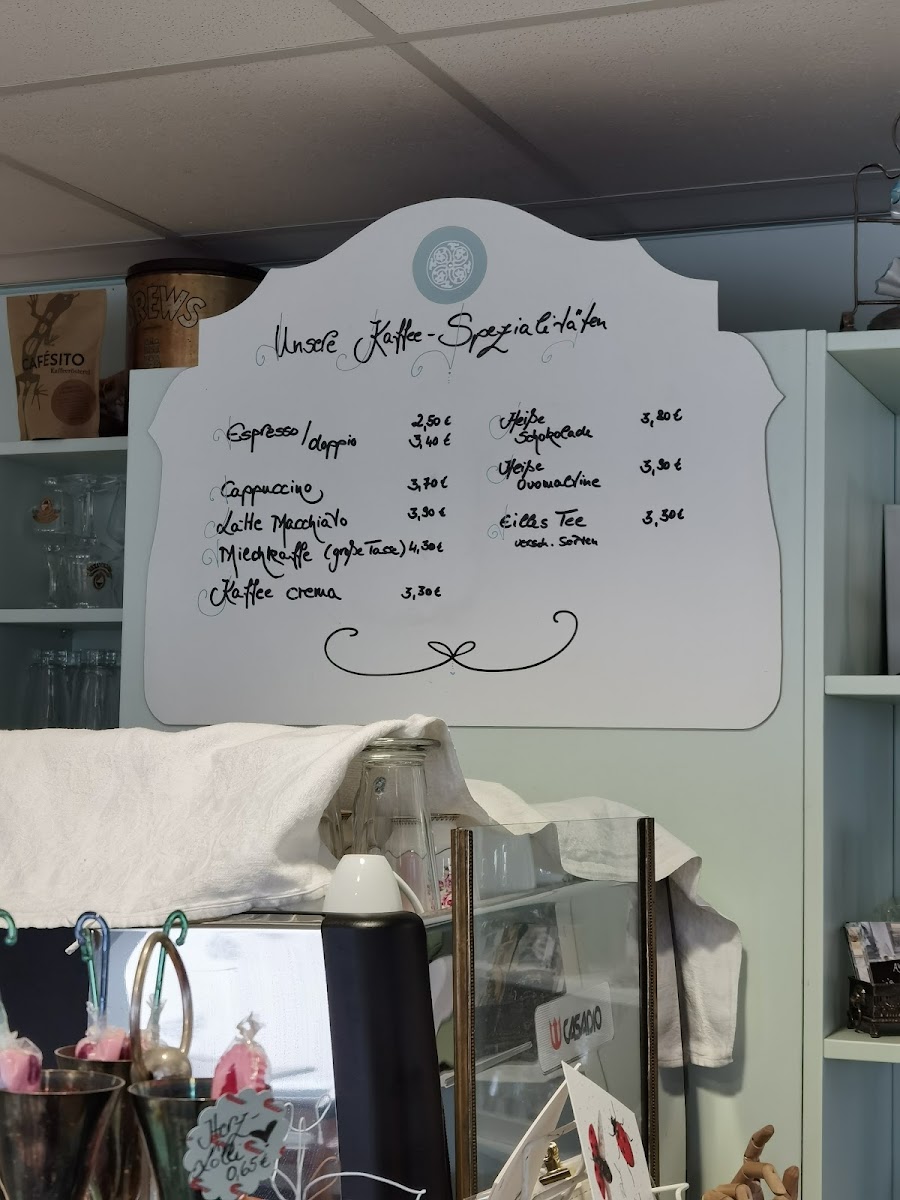 Unsere Kaffee-Spezialitäten
Espresso/doppio 2,50 € 3,40 €
Cappuccino 3,70 €
Latte Macchiato 3,90 €
Milchkaffe (große Tasse) 4,30 €
Kaffee crema 3,30 €
Heiße Schokolade 3,80 €
Heiße Ovomaltine 3,90 €
Eilles Tee 3,30 €
versch. Sorten
CAFÉSITO
Kaffeerösterei
REWS
CASADIO
Herz-
Lolli
0,65 €